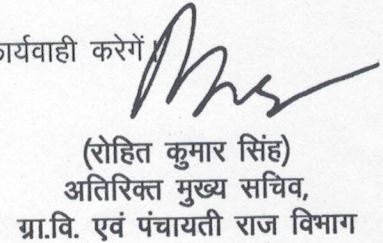 कार्यवाही करेगें।
(रोहित कुमार सिंह)
अतिरिक्त मुख्य सचिव,
ग्रा.वि. एवं पंचायती राज विभाग